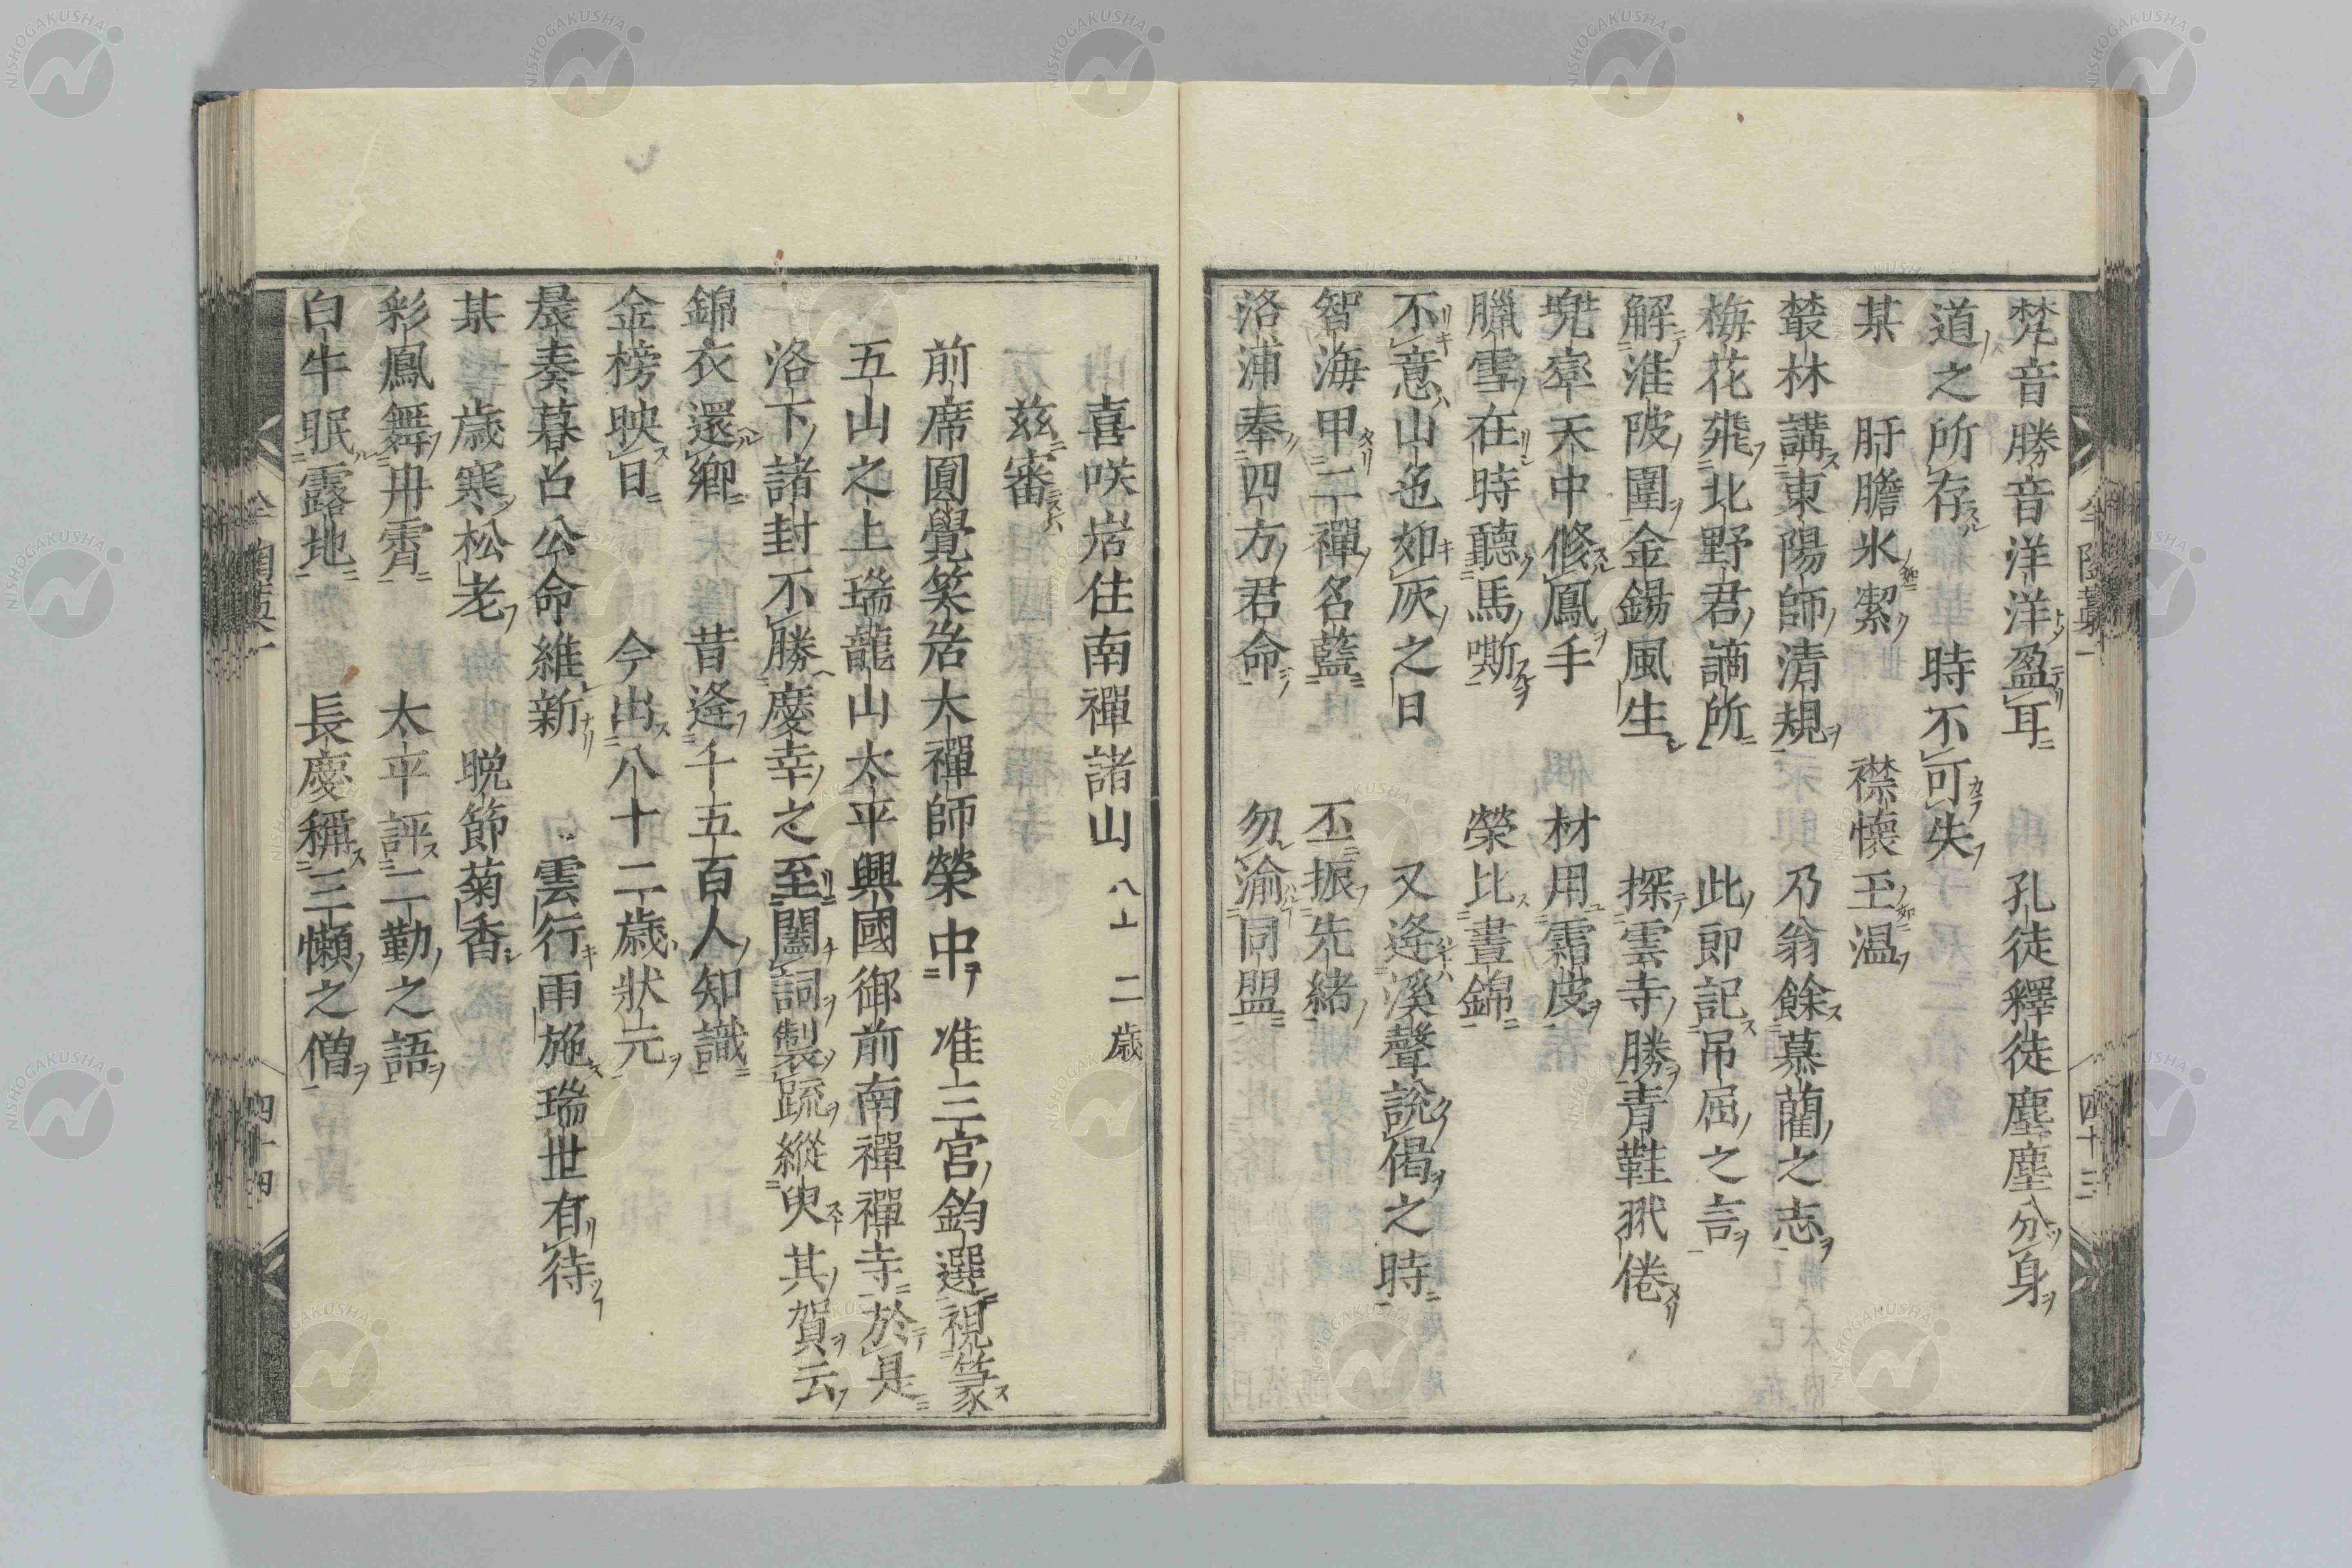 梵音勝音洋洋盈耳　孔徒釋徒塵塵分身
道之所存　時不可失
某　肝膽氷潔　襟懷玉温
叢林講東陽師清規　乃翁餘慕藺之志
梅花飛北野君謫所　此即記吊屈之言
解淮陂圍金錫風生　探雲寺勝青鞋　倦
兜率天中修鳳手　材用霜皮
臘雪在時聽馬嘶　榮比晝錦
不意山色如灰之日　又逢溪聲說偈之時
智海甲二禪名藍　丕振先緒
洛浦奉四方君命　勿渝同盟
喜咲岩住南禪諸山　八十二歳
茲審
前席圓覺笑岩大禪師榮中　准三宮鈞選視篆
五山之上瑞龍山太平興國御前南禪禪寺於是
洛下諸封不勝慶幸之至闔詞製疏縱臾其賀云
錦衣還鄉　昔逢千五百人知識
金榜映日　今出八十二歳狀元
晨奏暮召公命維新　雲行雨施瑞世有待
某　歳寒松老　晩節菊香
彩鳳舞丹霄　太平評二勤之語
白牛眠露地　長慶稱三懶之僧
四十三
四十四
NISHOGAKUSHA